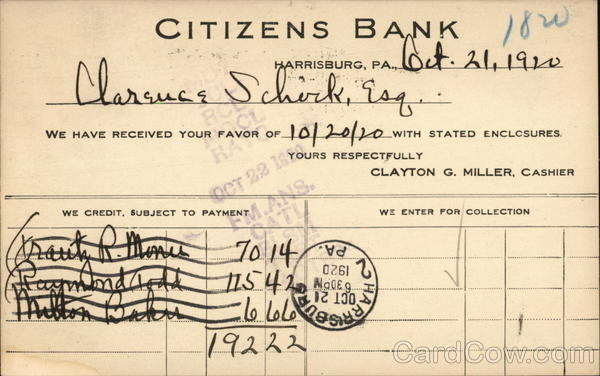 CITIZENS BANK
1820
HARRISBURG, PA., Oct. 21, 1920
Clarence Schock, Esq.
WE HAVE RECEIVED YOUR FAVOR OF 10/20/20 WITH STATED ENCLOSURES.
YOURS RESPECTFULLY
CLAYTON G. MILLER, CASHIER
OCT 22 1920
WE CREDIT, SUBJECT TO PAYMENT
WE ENTER FOR COLLECTION
R. 70 14
Raymond Todd 115 42
Milton Baker 6 66
192 22
HARRISBURG 2 PA.
OCT 21
6 30PM
1920
CardCow.com